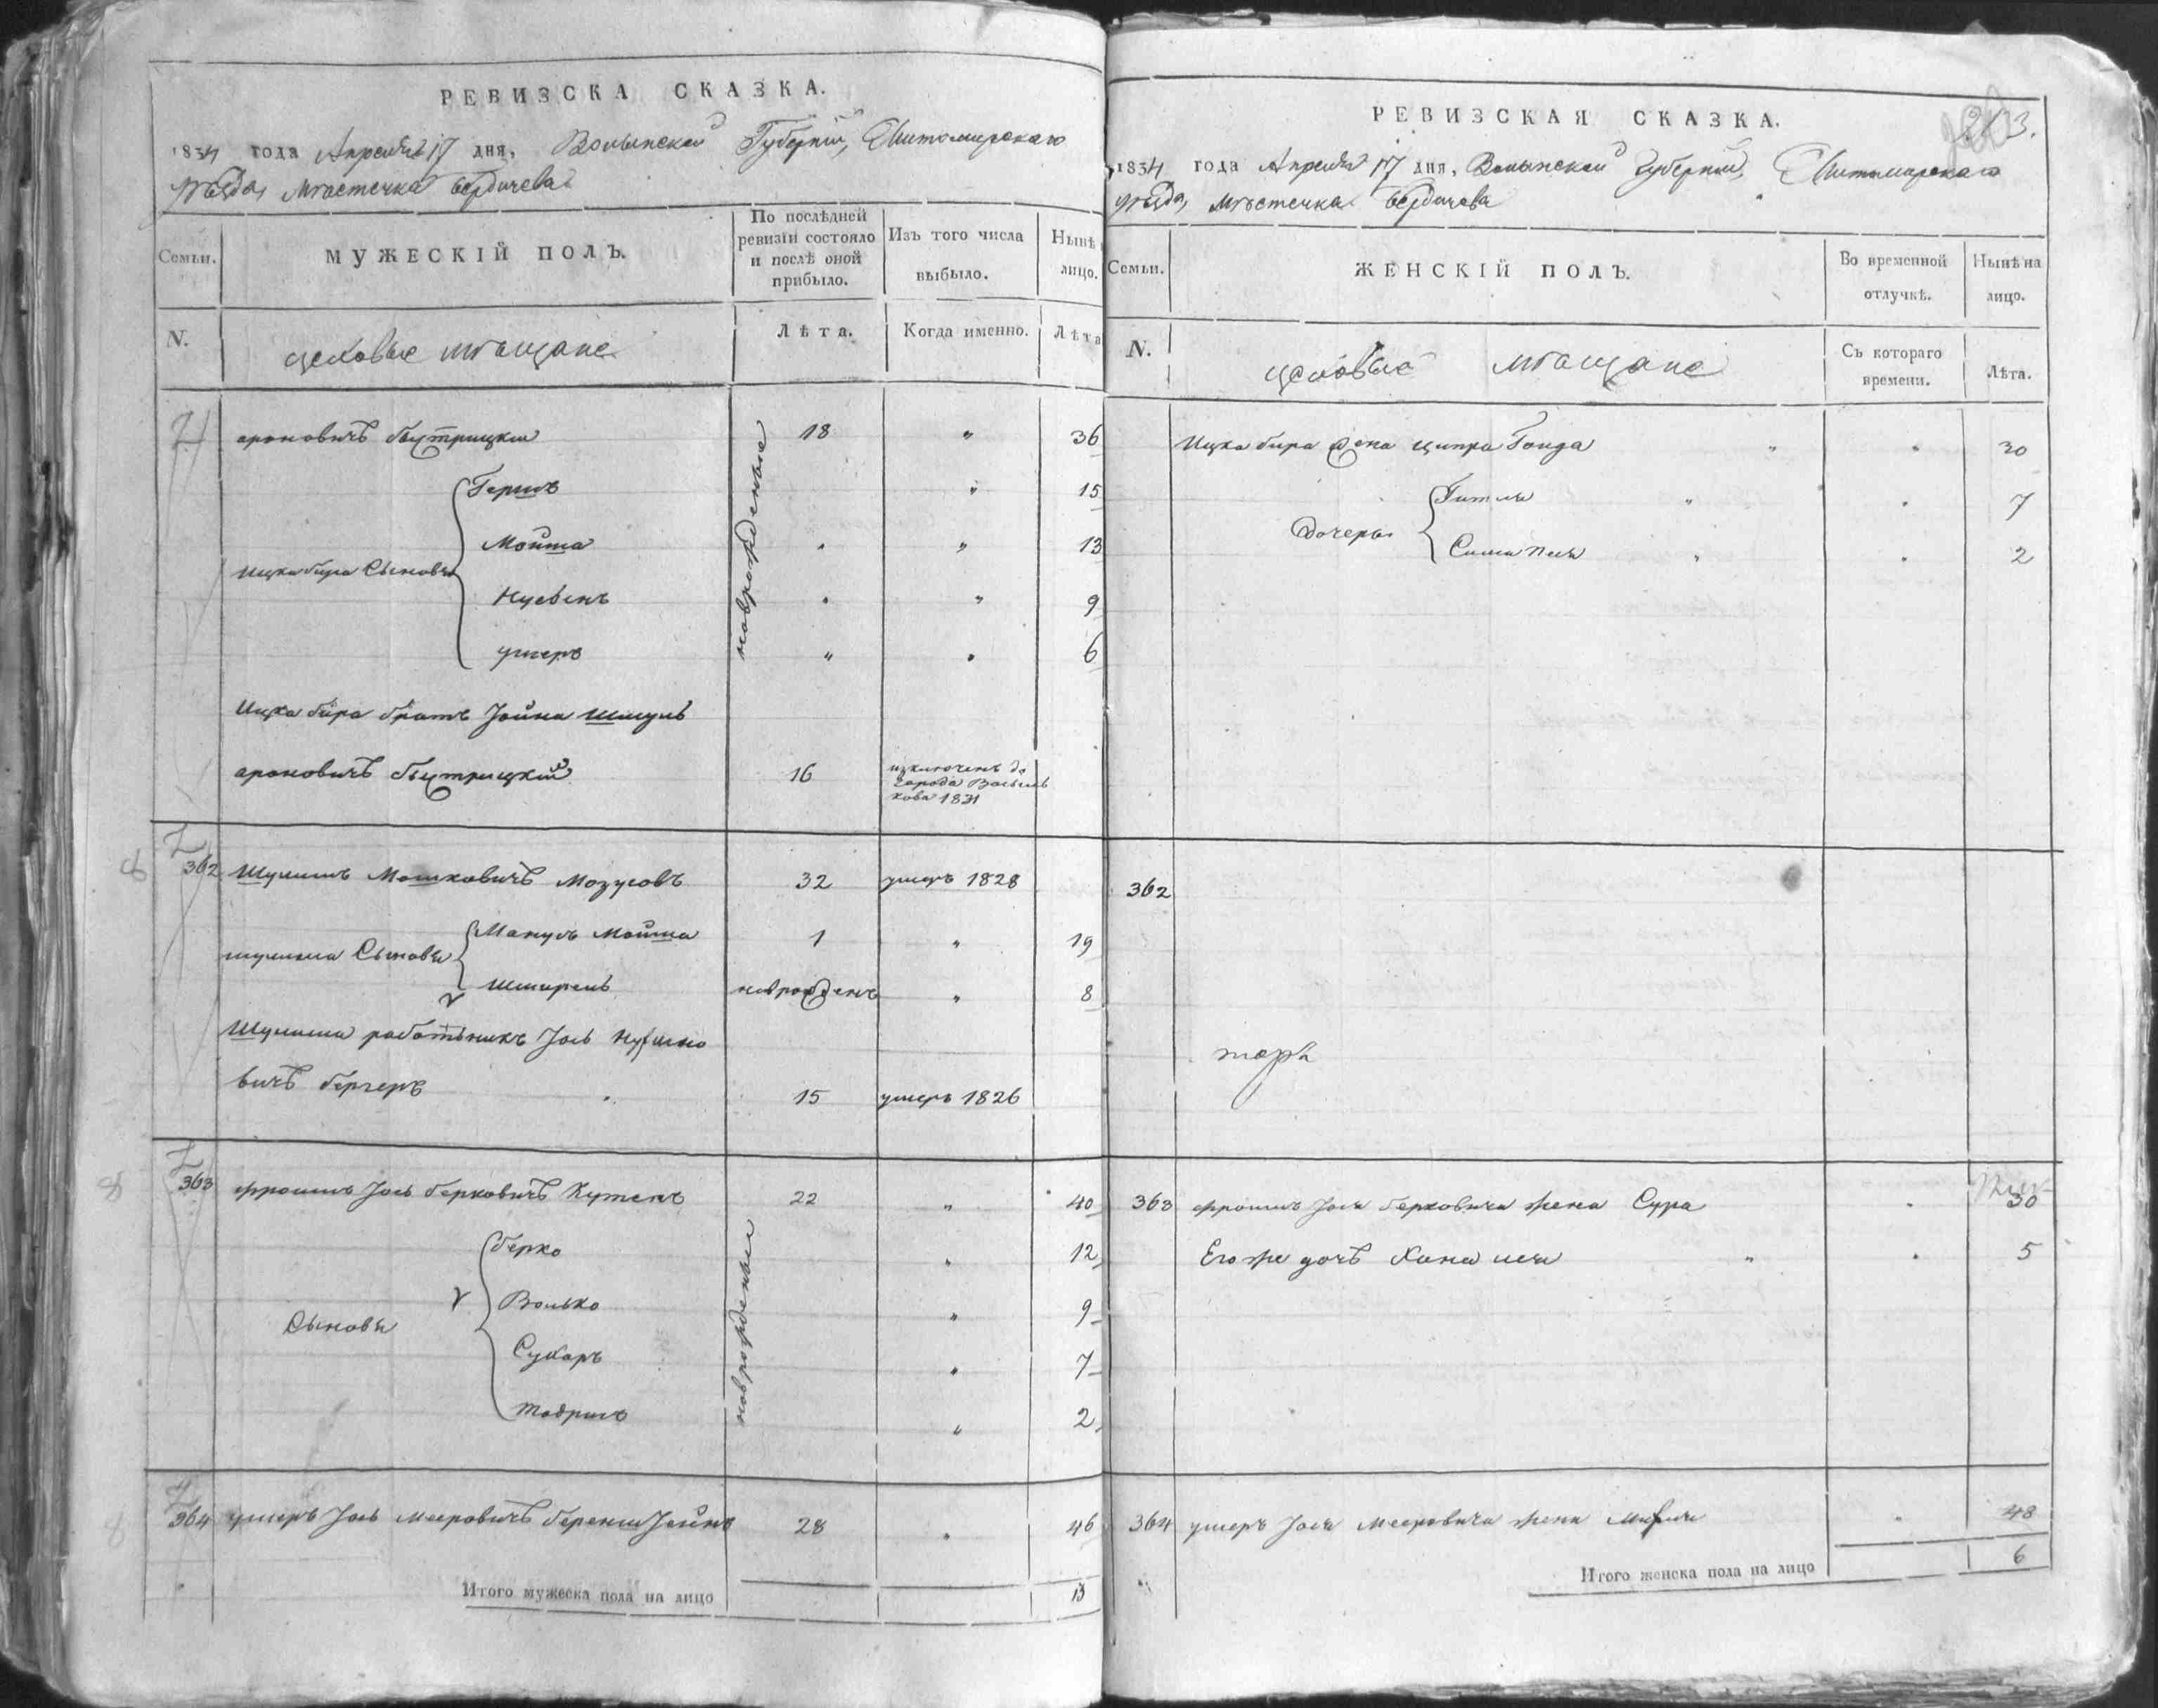 РЕВИЗСКА СКАЗКА.
1834 года Апреля 17 дня, Волынской Губерніи, Житомирскаго
уѣзда, мѣстечка бердичева
Семьи.
МУЖЕСКІЙ ПОЛЪ.
По послѣдней
ревизіи состояло
и послѣ оной
прибыло.
Изъ того числа
выбыло.
Нынѣ
лицо.
N.
цеховые мѣщане
Лѣта.
Когда именно.
Лѣта
ароновичъ быстрицкій 18 " 36
новрожденные
Гершъ " 15
Мойша " " 13
Ицка бира Сыновья
Нусынъ " " 9
ушеръ " " 6
Ицка бира братъ Іойна Шмуль
ароновичъ быстрицкій 16 изключенъ до
города Василь
кова 1831
362 Шулимъ Мошковичъ Мозусовъ 32 умеръ 1828
шулима Сыновья Манусъ Мойша 1 " 19
новрожденъ " 8
Шулима работникъ Іось
вичъ бергеръ " 15 умеръ 1826
363 фроимъ Іось берковичъ Кутенъ 22 " 40
новрожденные
Сыновья
берко " 12
Волько " 9
Сухаръ " 7
Тодрисъ " 2
364 ушеръ Іось Мееровичъ 28 " 46
Итого мужеска пола на лицо 13
РЕВИЗСКАЯ СКАЗКА.
213.
1834 года Апреля 17 дня, Волынской Губерніи, Житомирскаго
уѣзда, мѣстечка бердичева
Семьи.
ЖЕНСКІЙ ПОЛЪ.
Во временной
отлучкѣ.
Нынѣ на
лицо.
N.
цеховые мѣщане
Съ котораго
времени.
Лѣта.
Ицка бира жена ципра Голда " " 30
Дочеры
Гитля " " 7
Сима песя " " 2
362
363 фроимъ Іося берковича жена Сура " 30
Его же дочь Хана лея " " 5
364 ушеръ Іося Мееровича жена " 48
Итого женска пола на лицо 6